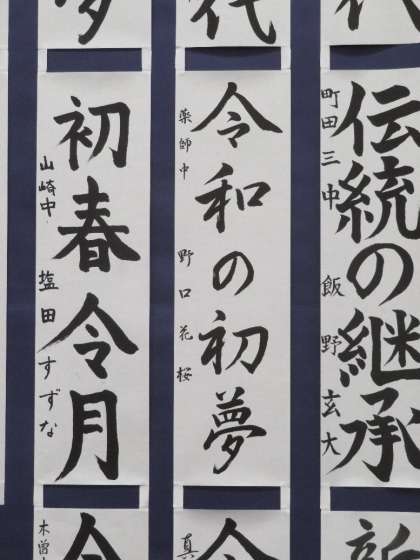 代
伝統の継承
町田三中 飯野玄大
令和の初夢
薬師中 野口花桜
初春令月
山崎中 塩田すずな
新
令
真
令
木曽